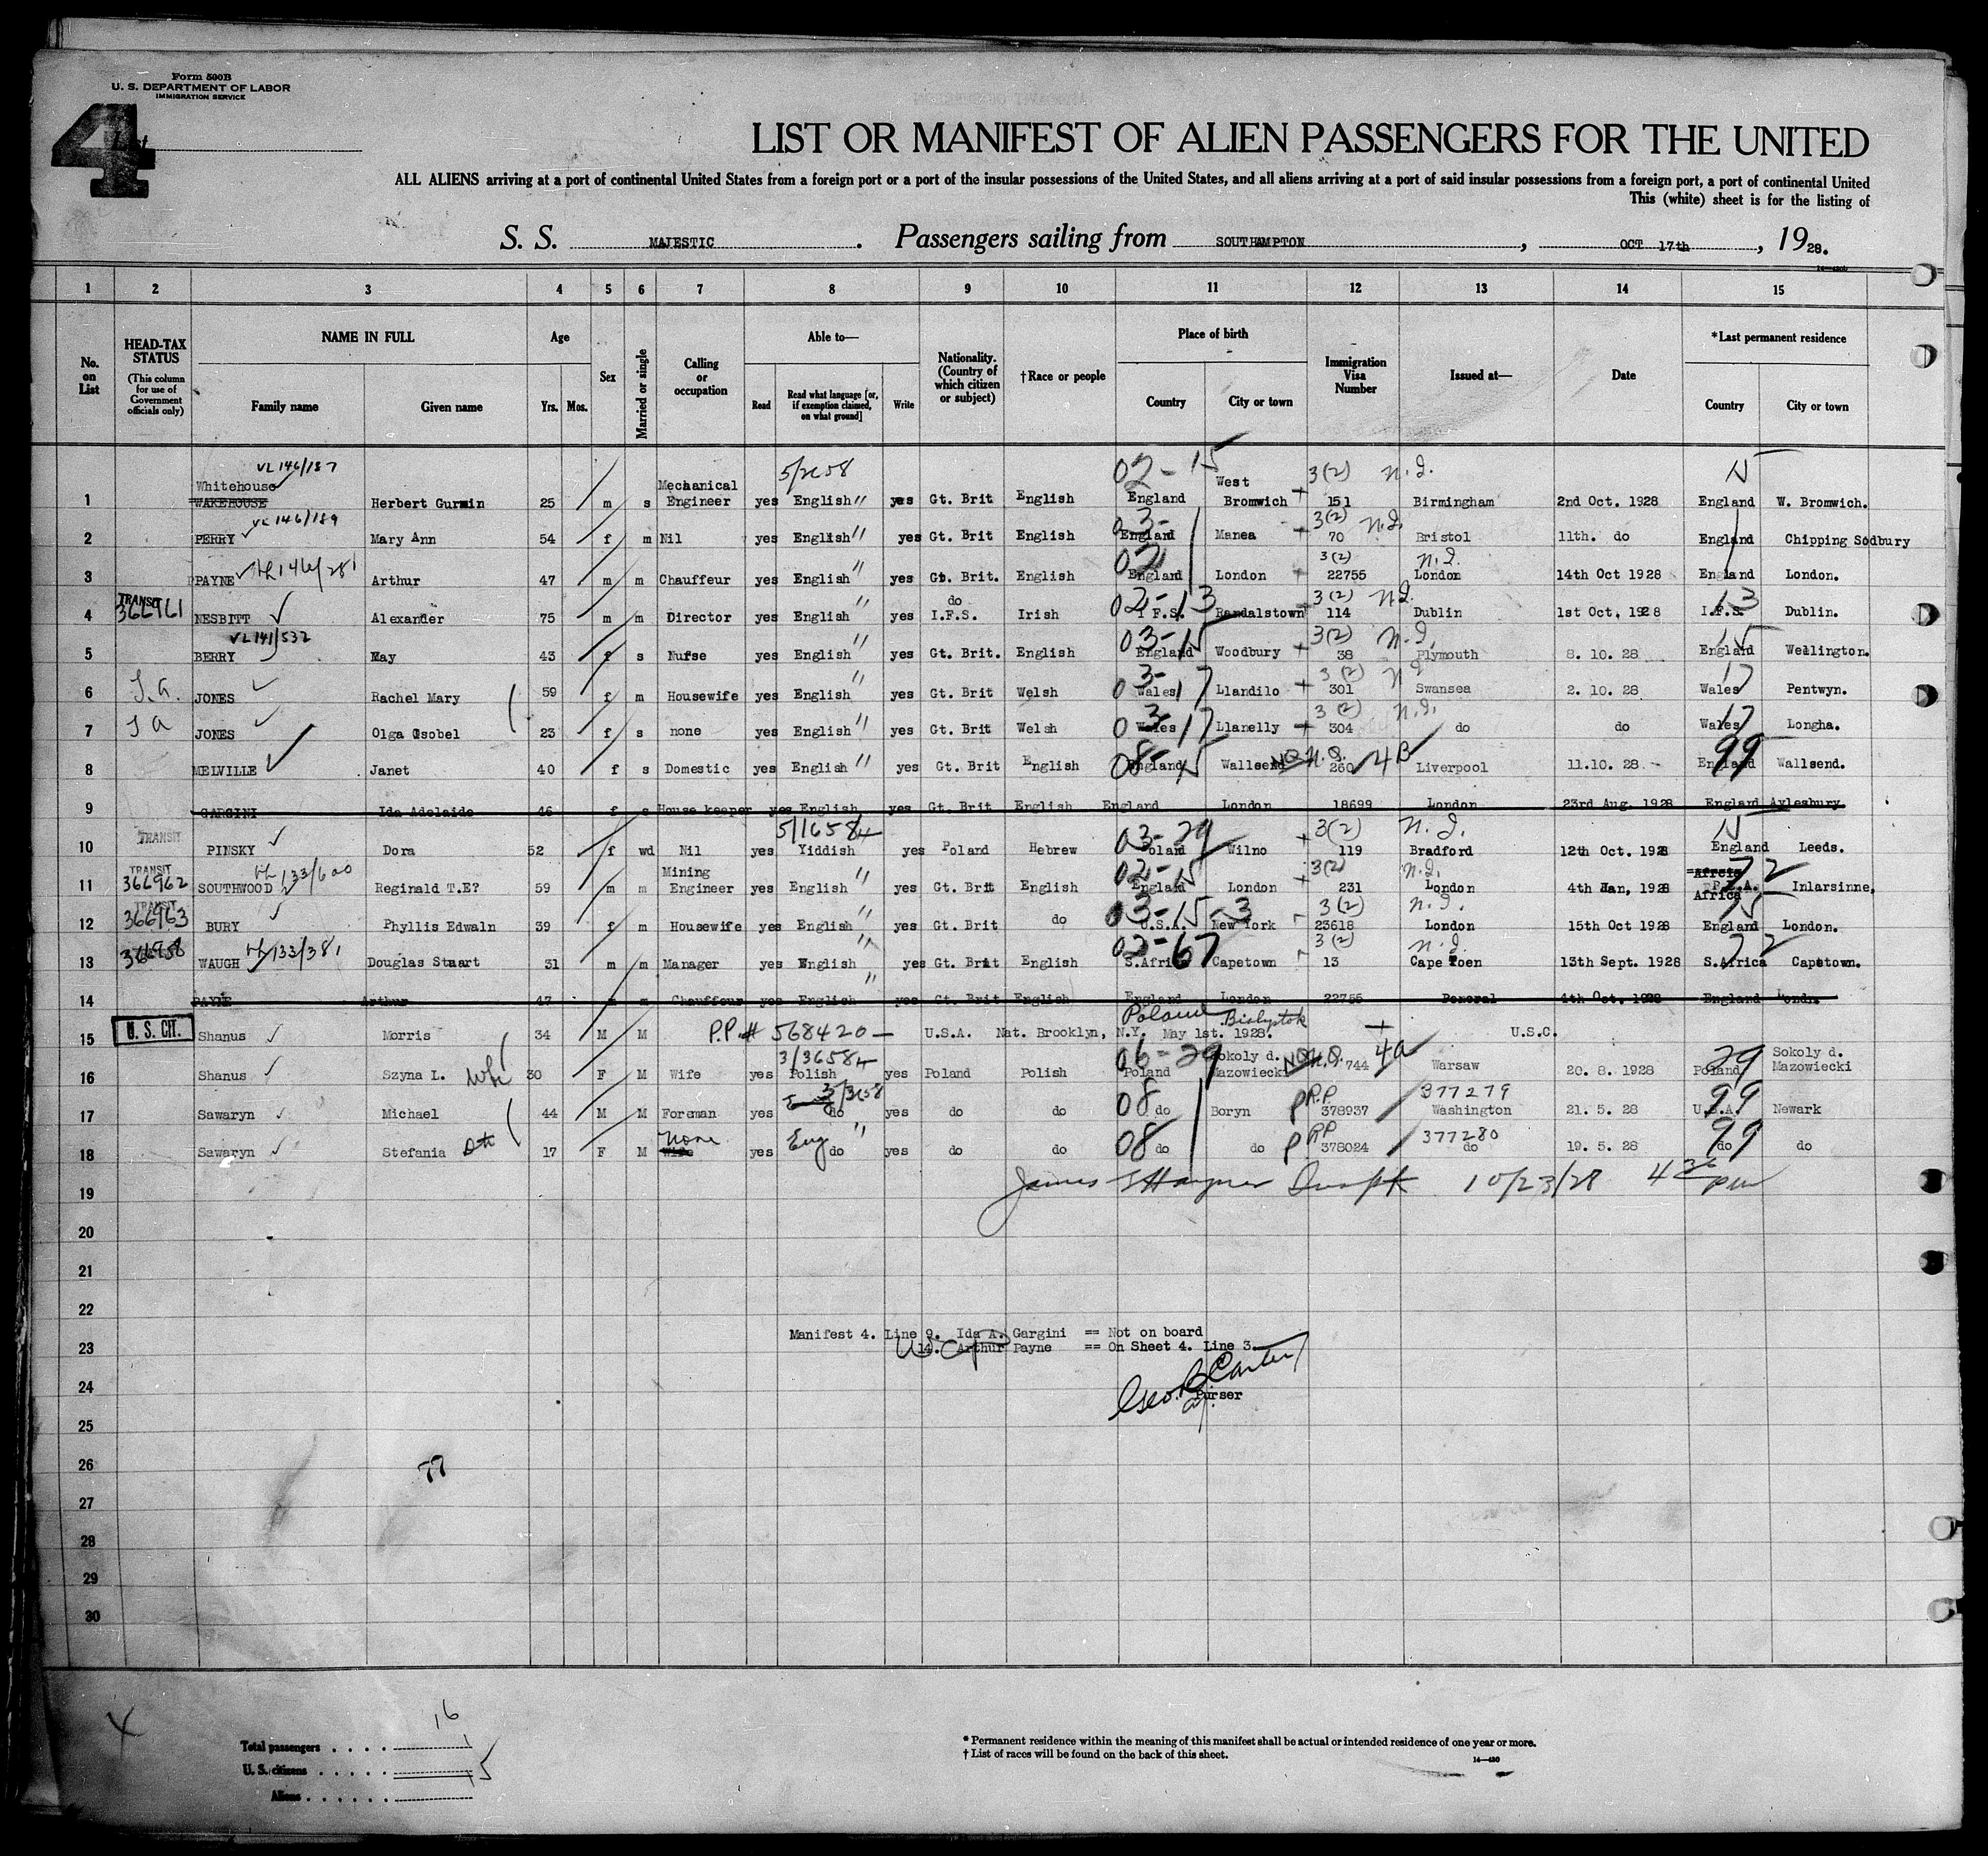 Form 500B
U. S. DEPARTMENT OF LABOR
IMMIGRATION SERVICE
4
List
LIST OR MANIFEST OF ALIEN PASSENGERS FOR THE UNITED
ALL ALIENS arriving at a port of continental United States from a foreign port or a port of the insular possessions of the United States, and all aliens arriving at a port of said insular possessions from a foreign port, a port of continental United
This (white) sheet is for the listing of
S. S. MAJESTIC. Passengers sailing from SOUTHAMPTON, OCT 17th, 1928.
1 2 3 4 5 6 7 8 9 10 11 12 13 14 15
No. on List
HEAD-TAX STATUS (This column for use of Government officials only)
NAME IN FULL Family name Given name
Age Yrs. Mos.
Sex
Married or single
Calling or occupation
Able to— Read Read what language [or, if exemption claimed, on what ground] Write
Nationality. (Country of which citizen or subject)
†Race or people
Place of birth Country City or town
Immigration Visa Number
Issued at—
Date
*Last permanent residence Country City or town
VL146/187 5/2658 02-15 3(2) N.I. 15
Whitehouse Mechanical West
1 WAREHOUSE Herbert Gurmin 25 m s Engineer yes English " yes Gt. Brit English England Bromwich + 151 Birmingham 2nd Oct. 1928 England W. Bromwich.
VL 146/189 03- 3(2) N.I.
2 PERRY Mary Ann 54 f m Nil yes English " yes Gt. Brit English England Manea + 70 Bristol 11th. do England Chipping Sodbury
VL146/281 02 3(2) N.I.
3 PAYNE Arthur 47 m m Chauffeur yes English " yes Gt. Brit. English England London + 22755 London 14th Oct 1928 England London.
TRANSIT 366961 do 02-13 3(2) N.I. 13
4 NESBITT Alexander 75 m m Director yes English " yes I.F.S. Irish I F.S. Randalstown 114 Dublin 1st Oct, 1928 I.F.S. Dublin.
VL141/532 03-15 3(2) N.I. 15
5 BERRY May 43 f s Nurse yes English " yes Gt. Brit. English England Woodbury + 38 Plymouth 8. 10. 28 England Wellington.
03-17 3(2) N.I. 17
6 JONES Rachel Mary 59 f m Housewife yes English " yes Gt. Brit Welsh Wales Llandilo + 301 Swansea 2. 10. 28 Wales Pentwyn.
03-17 3(2) N.I. 17
7 JONES Olga Osobel 23 f s none yes English " yes Gt. Brit Welsh Wales Llanelly + 304 do do Wales Longha.
08-15 4B 99
8 MELVILLE Janet 40 f s Domestic yes English " yes Gt. Brit English England Wallsend 260 Liverpool 11.10. 28 England Wallsend.
9 GARGINI Ida Adelaide 46 f s House keeper yes English yes Gt. Brit English England London 18699 London 23rd Aug. 1928 England Aylesbury
TRANSIT 5/1658 03-29 3(2) N.I. 15
10 PINSKY Dora 52 f wd Nil yes Yiddish yes Poland Hebrew Poland Wilno + 119 Bradford 12th Oct. 1928 England Leeds.
TRANSIT 366962 VL133/600 Mining 02-15 3(2) N.I. 72
11 SOUTHWOOD Reginald T.E? 59 m m Engineer yes English " yes Gt. Brit English England London + 231 London 4th Jan, 1928 Africa Inlarsinne,
TRANSIT 366963 03-15-3 3(2) N.I. 15
12 BURY Phyllis Edwaln 39 f m Housewife yes English " yes Gt. Brit do U.S.A. New York 23618 London 15th Oct 1928 England London.
366958 VL133/381 02-67 3(2) N.I. 72
13 WAUGH Douglas Stuart 31 m m Manager yes English " yes Gt. Brit English S.Afric Capetown 13 Cape Toen 13th Sept. 1928 S.Africa Capetown.
14 PAYNE Arthur 47 m m Chauffeur yes English yes Gt. Brit English England London 22755 4th Oct. 1928 England Londn.
Poland Bialystok
15 U. S. CIT. Shanus Morris 34 M M P.P.# 568420— U.S.A. Nat. Brooklyn, N.Y. May 1st. 1928. U.S.C.
3/3658 06-29 Sokoly d. 4A 29 Sokoly d.
16 Shanus Szyna L. wife 30 F M Wife yes Polish yes Poland Polish Poland Mazowiecki 744 Warsaw 20. 8. 1928 Poland Mazowiecki
3/3658 08 P.P 377279 99
17 Sawaryn Michael 44 M M Foreman yes do yes do do do Boryn 378937 Washington 21. 5. 28 U.S.A. Newark
none Eng " 08 P.P 377280 99
18 Sawaryn Stefania 17 F M Wife yes do yes do do do do 378024 do 19. 5. 28 do do
19 James 10/23/28 4 pm
20
21
22
Manifest 4. Line 9. Ida A. Gargini == Not on board
23 14. Arthur Payne == On Sheet 4. Line 3.
24 Geo. B Carter
Purser
25
26 77
27
28
29
30
16
Total passengers 1
U. S. citizens 15
Aliens
* Permanent residence within the meaning of this manifest shall be actual or intended residence of one year or more.
† List of races will be found on the back of this sheet.
14—430